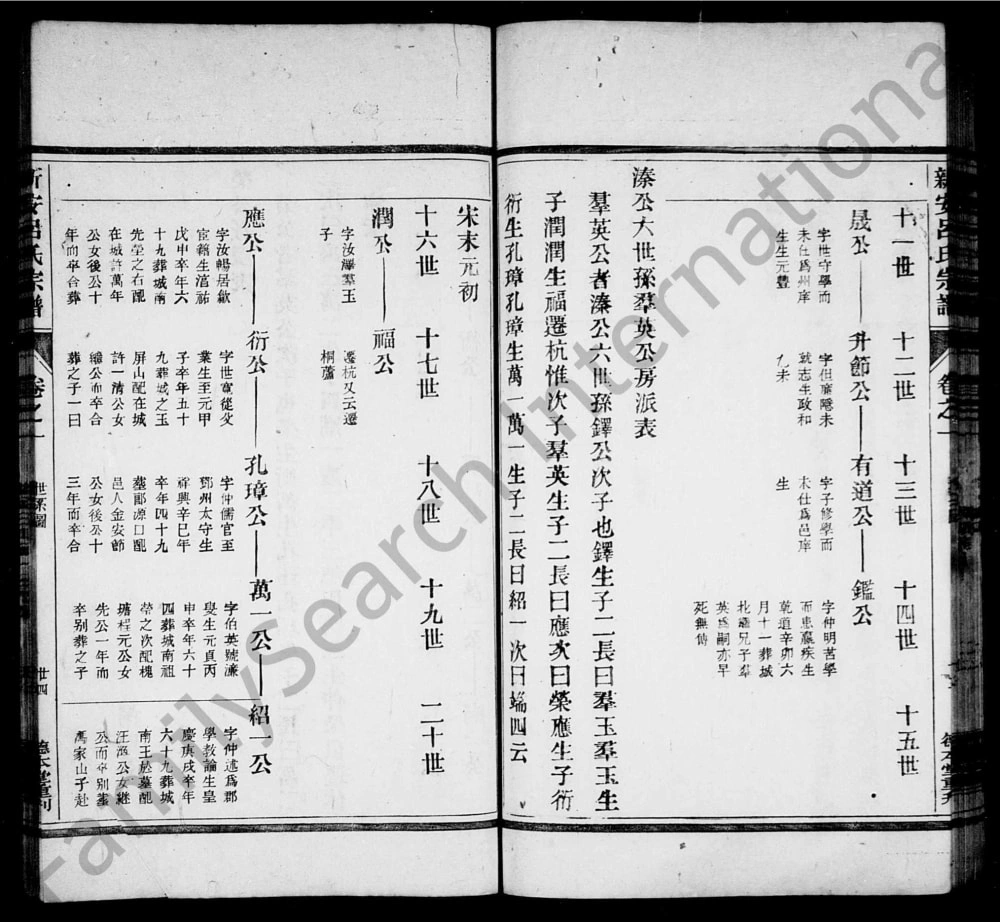 新安呂氏宗譜
卷之一
十一世 十二世 十三世 十四世 十五世
晟公——升節公——有道公——鑑公
字世守學而
未仕爲州庠
生生元豐
乙未
就志生政和
字子修學而
未仕爲邑庠
生
字仲明苦學
而患羸疾生
乾道辛卯六
月十一葬城
北繼兄子羣
英爲嗣亦早
死無傳
溱公六世孫羣英公房派表
羣英公者溱公六世孫鐸公次子也鐸生子二長曰羣玉羣玉生
子潤潤生福遷杭惟次子羣英生子二長曰應次曰榮應生子衍
衍生孔璋孔璋生萬一萬一生子二長曰紹一次曰端四云
宋末元初
十六世 十七世 十八世 十九世 二十世
潤公——福公
字汝澤羣玉
子
遷杭又云遷
桐蘆
應公——衍公——孔璋公——萬一公——紹一公
字汝暢居歙
宦籍生淳祐
戊申卒年六
十九葬城南
先塋之右配
在城許萬年
公女後公十
年而卒合葬
字世寬從父
業生至元甲
子卒年五十
九葬城之玉
屏山配在城
許一清公女
繼公而卒合
葬之子一曰
字仲儒官至
鄧州太守生
祥興辛巳年
卒年四十九
墓鄖源口配
邑人金安節
公女後公十
三年而卒合
字伯英號濂
叟生元貞丙
申卒年六十
四葬城南祖
塋之次配槐
塘程元公女
先公一年而
卒别葬之子
字仲述爲郡
學教諭生皇
慶庚戌卒年
六十九葬城
南王於墓配
汪漁公女繼
公而卒别葬
馮家山子赴
新安呂氏宗譜
卷之一
世系圖
廿四
德本堂重刊
FamilySearch International